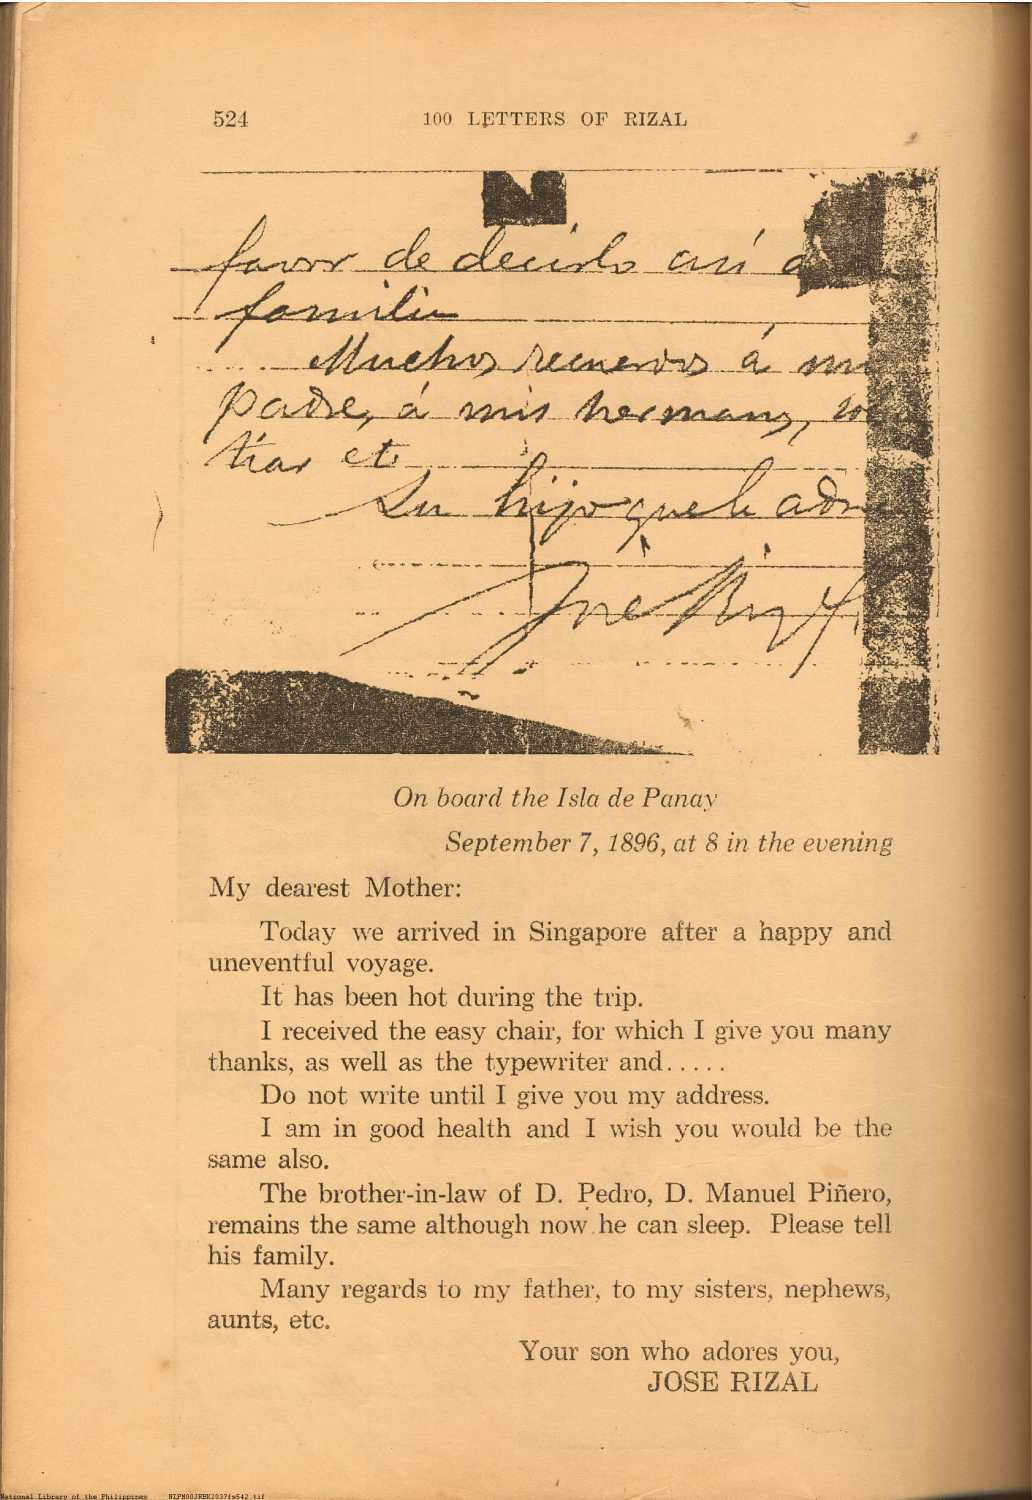 524
100 LETTERS OF RIZAL
favor de decirlo así á
familia
Muchos recuerdos á mi
padre, á mis hermanas,
tias etc
Su hijo que le adora
José Rizal
On board the Isla de Panay
September 7, 1896, at 8 in the evening
My dearest Mother:
Today we arrived in Singapore after a happy and
uneventful voyage.
It has been hot during the trip.
I received the easy chair, for which I give you many
thanks, as well as the typewriter and.....
Do not write until I give you my address.
I am in good health and I wish you would be the
same also.
The brother-in-law of D. Pedro, D. Manuel Piñero,
remains the same although now he can sleep. Please tell
his family.
Many regards to my father, to my sisters, nephews,
aunts, etc.
Your son who adores you,
JOSE RIZAL
National Library of the Philippines NLPM00JRBK2037fs542.tif